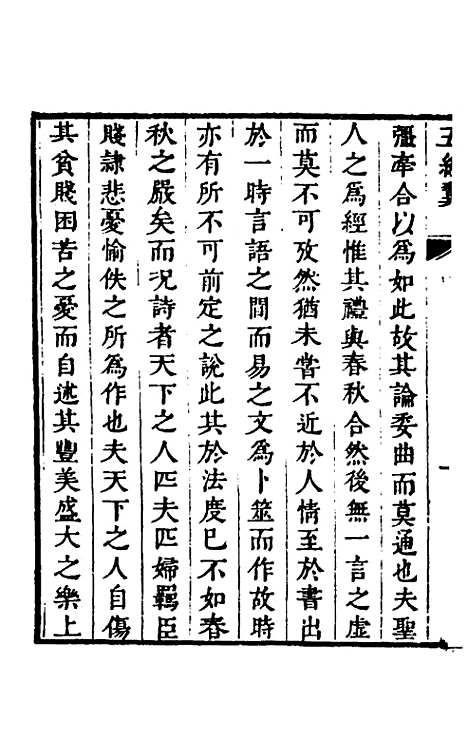 五經翼
彊牽合以爲如此故其論委曲而莫通也夫聖
人之爲經惟其禮與春秋合然後無一言之虛
而莫不可攷然猶未嘗不近於人情至於書出
於一時言語之間而易之文爲卜筮而作故時
亦有所不可前定之說此其於法度已不如春
秋之嚴矣而况詩者天下之人匹夫匹婦羈臣
賤隸悲憂愉佚之所爲作也夫天下之人自傷
其貧賤困苦之憂而自述其豐美盛大之樂上